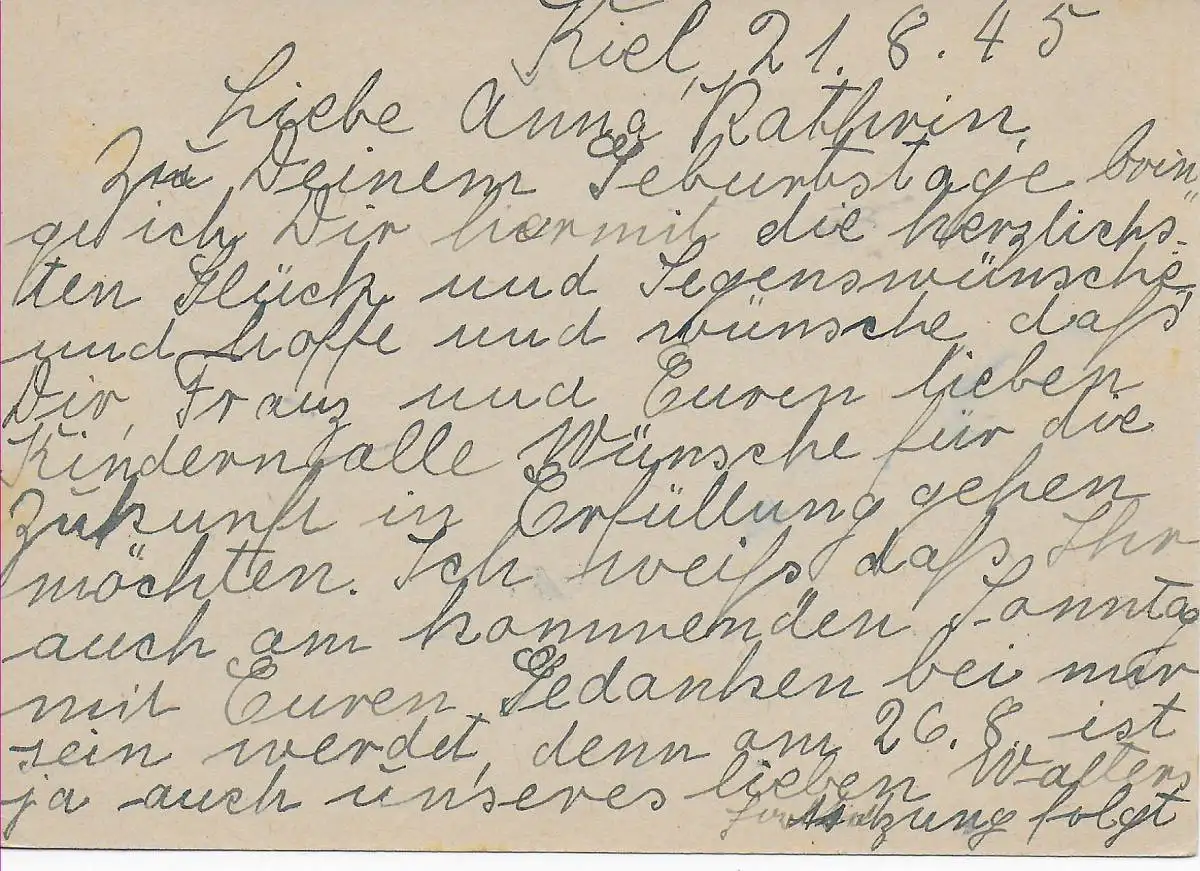 Kiel, 21.8.45
Liebe Anna Kathrin,
Zu Deinem Geburtstage brin
ge ich Dir hiermit die herzlichs-
ten Glück und Segenswünsche,
und hoffe und wünsche, daß
Dir, Franz und Euren lieben
Kindern alle Wünsche für die
Zukunft in Erfüllung gehen
möchten. Ich weiß, daß Ihr
auch am kommenden Sonntag
mit Euren Gedanken bei mir
sein werdet, denn am 26.8. ist
ja auch unseres lieben Walters
folgt